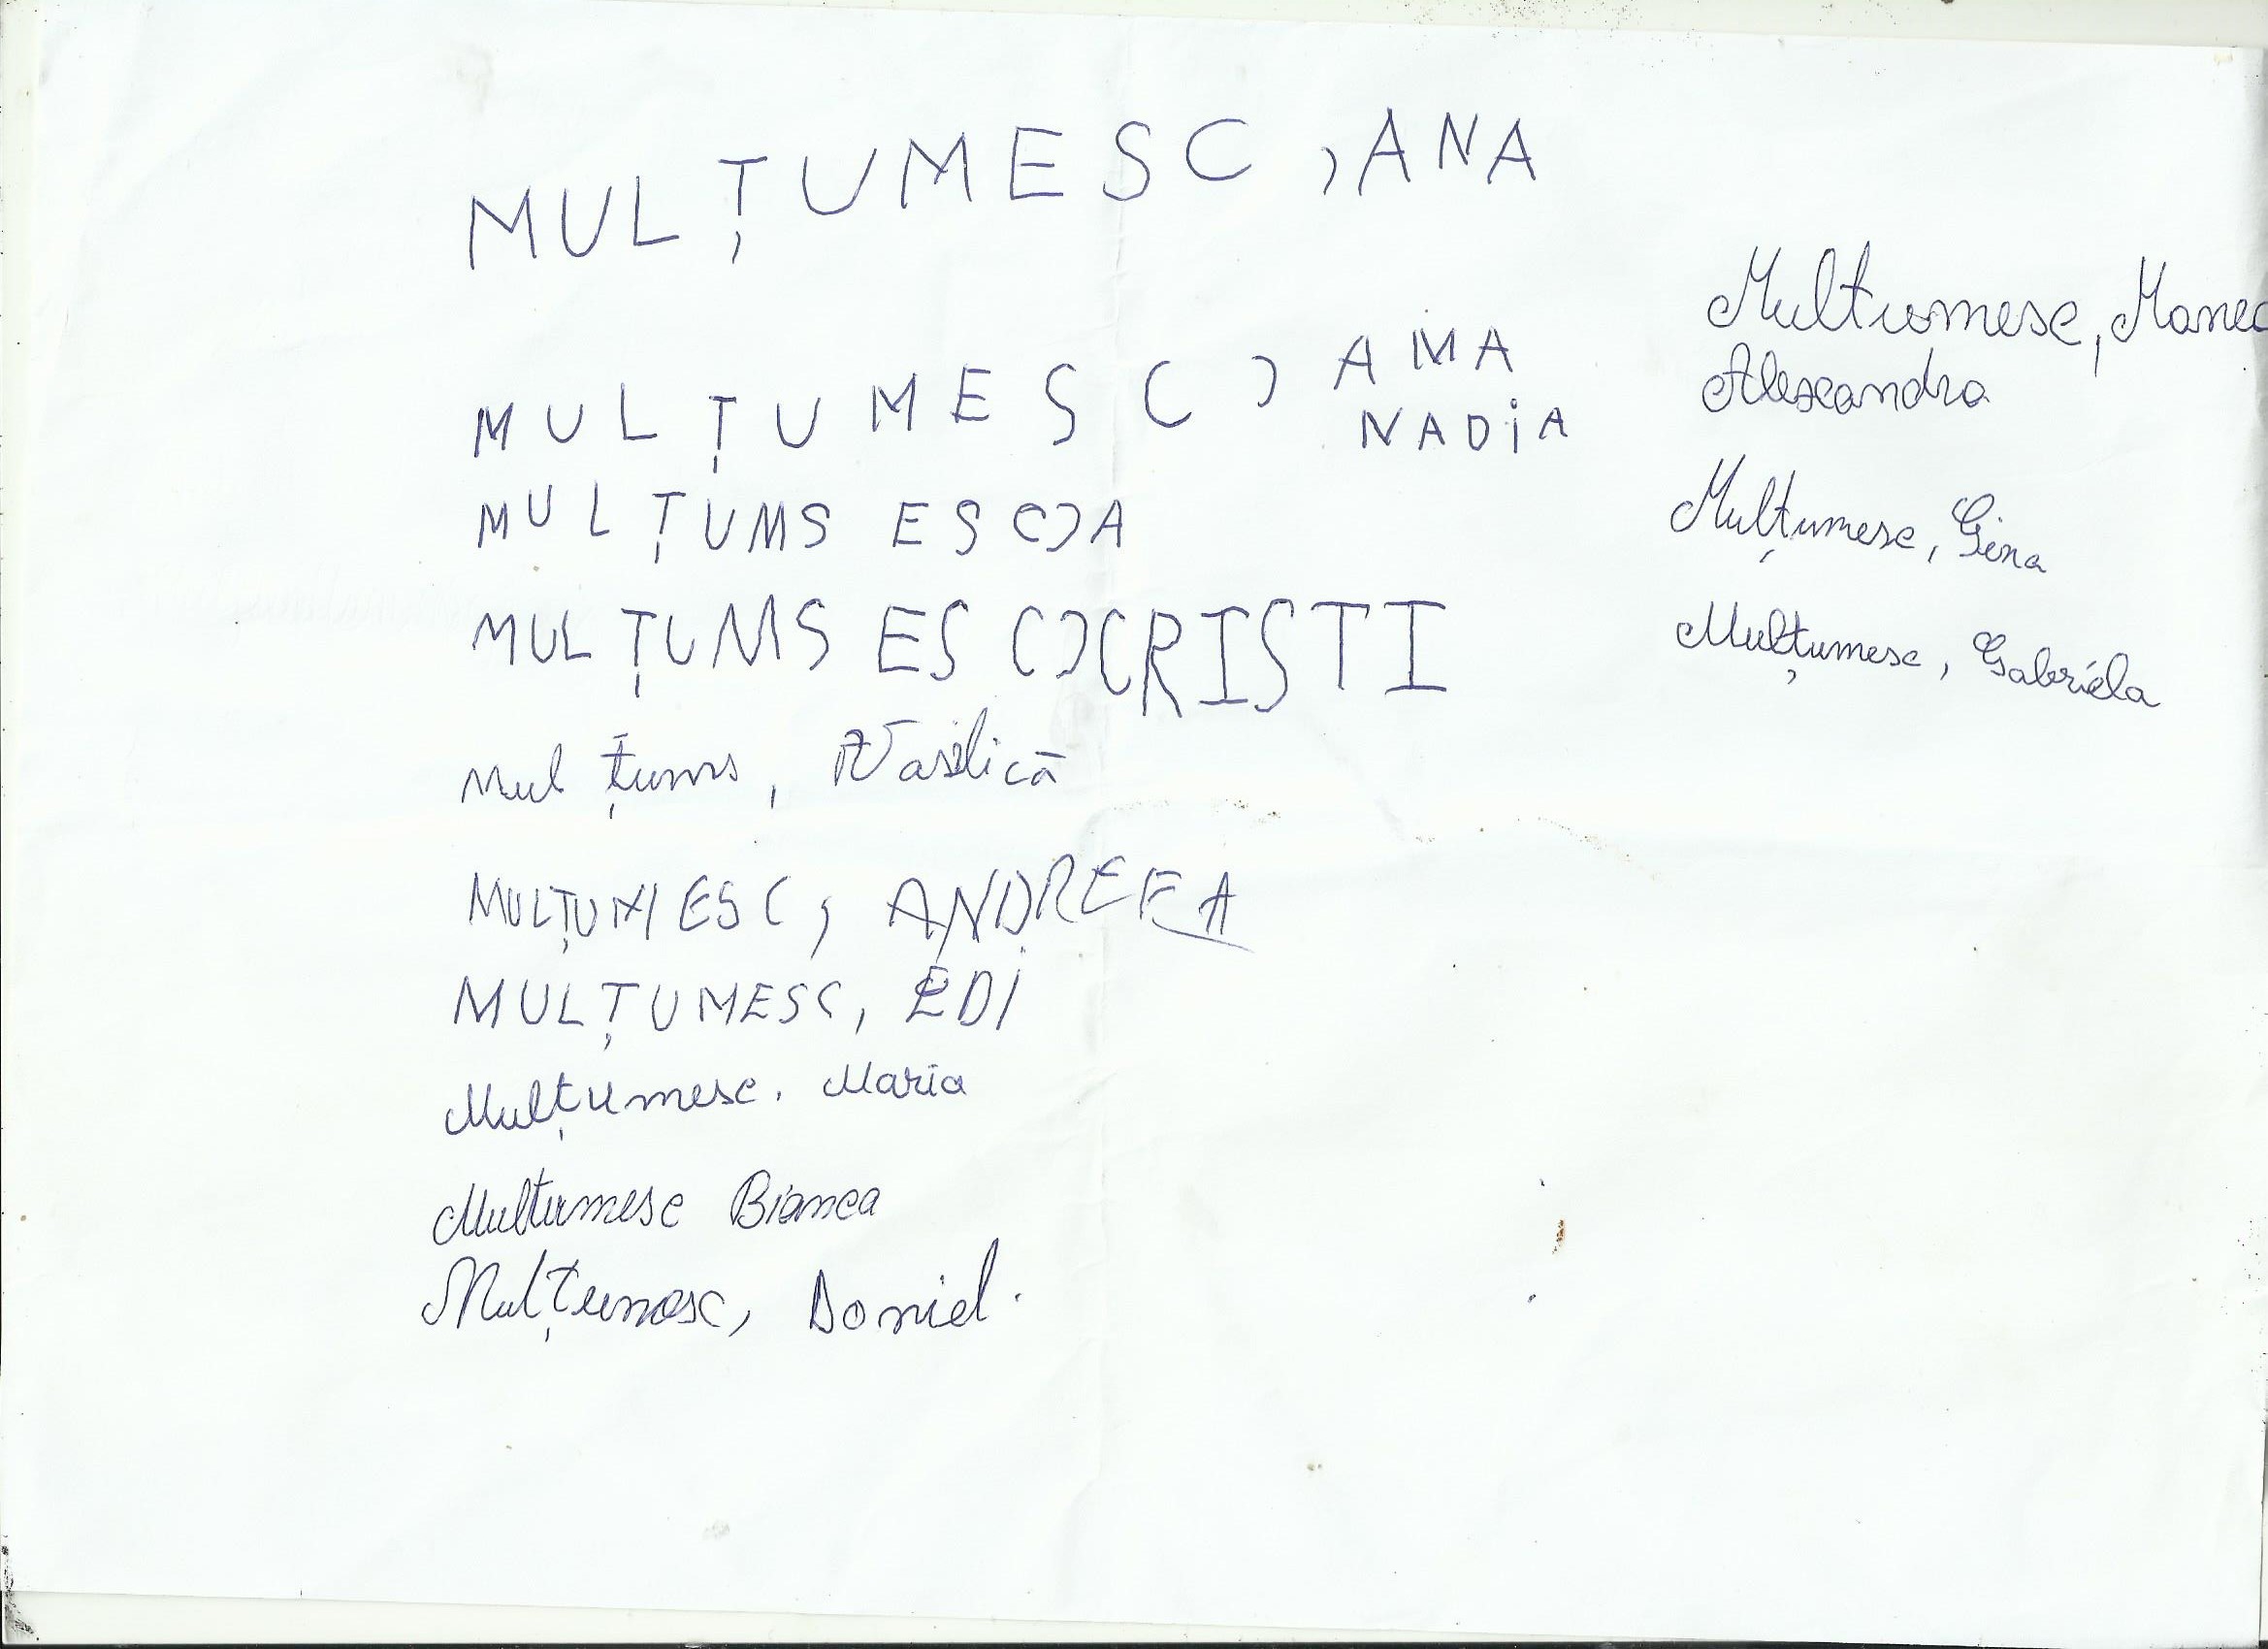 MULȚUMESC, ANA
MULȚUMESC, AMA
NADIA
MULȚUMS ESC)A
MULȚUMS ESC)CRISTI
Mul țums, Vasilică
MULȚUMESC, ANDREEA
MULȚUMESC, EDI
Mulțumesc. Maria
Multumesc Bianca
Mulțumesc, Daniel.
Multumesc,
Alexandra
Mulțumesc, Gina
Mulțumesc, Gabriela